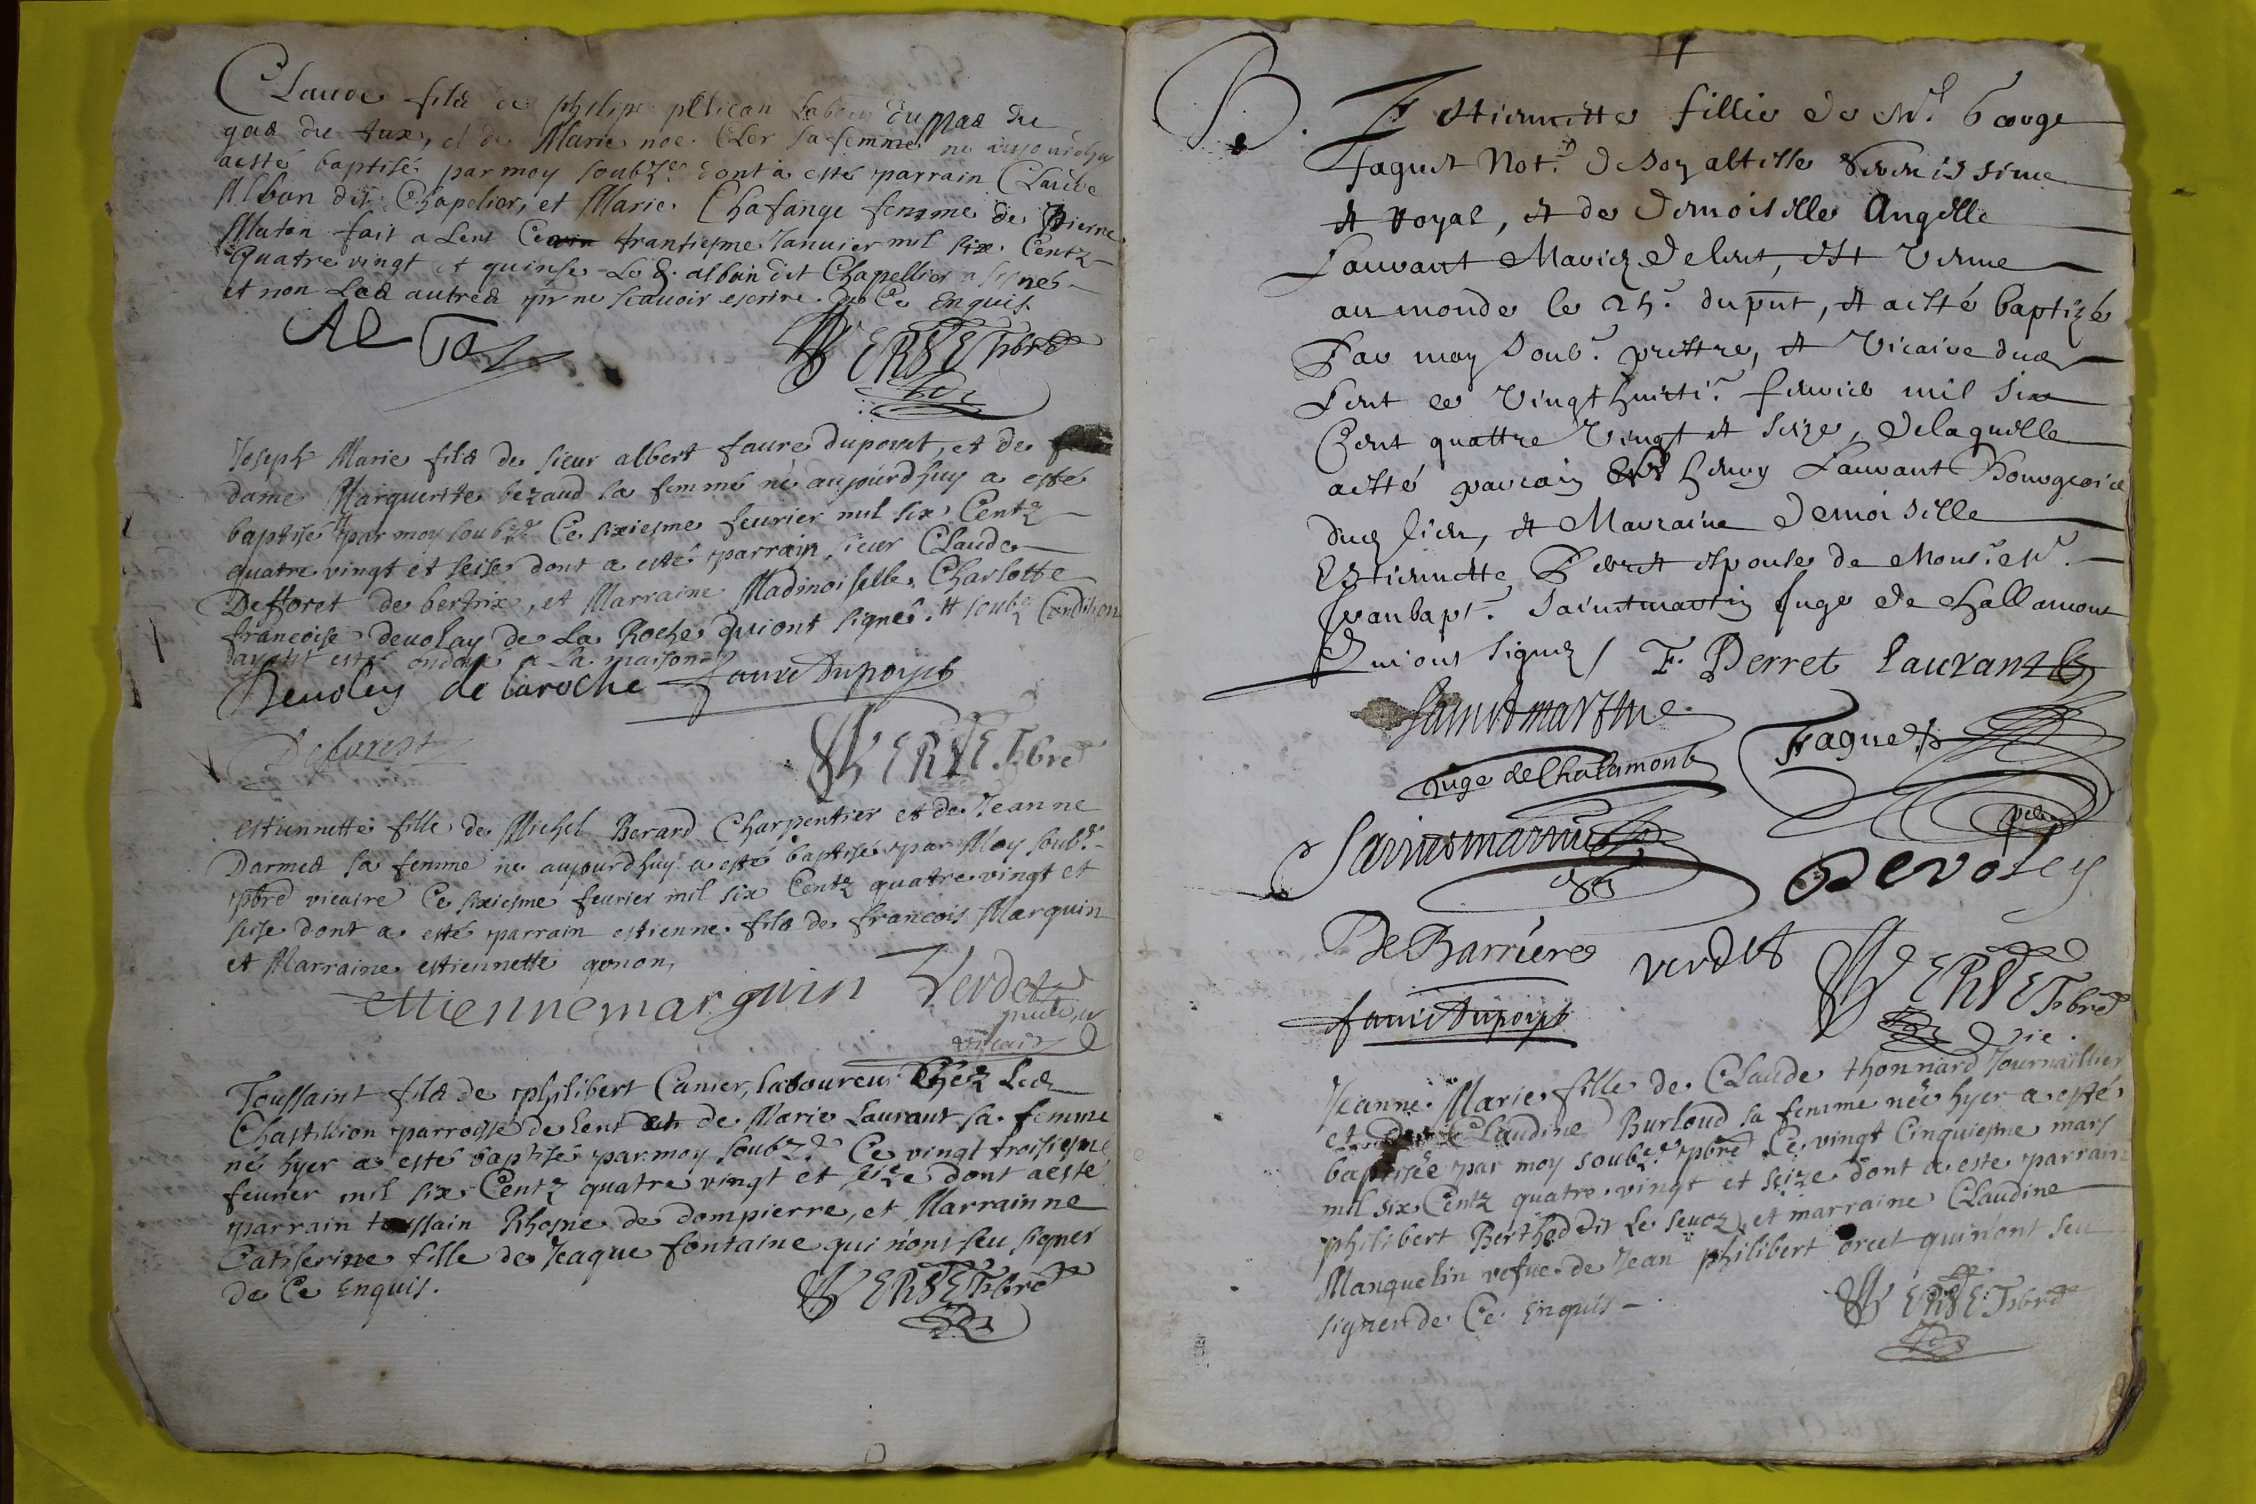 Claude fils de philipe pelican Labour du Mas du
gas du tux, et de Marie noe Cler sa femme ne aujourdhuy
aesté baptisé par moy soubz.e dont a esté parrain Claude
Alban dit Chapelier, et Marie Chafange femme de Pierre
Muton fait a Lent Ce trantiesme Januier mil six Centz
Quatre vingt et quinse Le d. alban dit Chapellier a signes
et non Les autres pr ne scauoir escrire de Ce Enquis.
Al Ban
VERDET pbre
Joseph Marie fils de sieur albert faure dupoyet, et de
dame Marguerite bezaud sa femme né aujourdhuy a esté
baptisé par moy soubz.e Ce sixiesme feurier mil six Centz
quatre vingt et seise dont a esté parrain sieur Claude
Defforet de bertrix, et Marraine Madmoiselle Charlotte
francoise deuolay de La Roche qui ont signés. et soubz Condition
dauoir esté ondoyé a La maison
Deuoley de laroche faure Dupoyet
Deforest
VERDET pbre
estiennette fille de Michel Berard Charpentier et de Jeanne
Darmes sa femme ne aujourdhuy a esté baptisé par Moy soub.e
pbre vicaire Ce sixiesme feurier mil six Centz quatre vingt et
seise dont a esté parrain estienne fils de francois Marguin
et Marraine estiennette gonon,
estienne marguin Verdet
vicaire
Toussaint fils de philibert Canier, laboureur Chez Les
Chastillion parroisse de Lent et de Marie Laurant sa femme
né hyer a esté baptisé par moy soubz.e Ce vingt troisiesme
feurier mil six Centz quatre vingt et seize dont aesté
parrain toussain Rhosne de dompierre, et Marrainne
Catherine fille de Jeaque fontaine qui n'ont seu signer
de Ce Enquis.
VERDET pbre
B. Estiennette fillie de Mr. George
faguet Not.e de son altesse serenissime
et royal, et de demoiselle Angelle
Lauvant Mariez de lent, est venue
au monde le 25e. du pnt, et aesté baptizé
Par moy soub.e prettre, et Vicaire dud
Lent ce vingt huicti.e feurier mil six
Cent quattre vingt et seize, de laquelle
aesté parrain Sr henry Lauvant Bourgeois
dud lieu, et Marraine demoiselle
Estiennette Perret espouse de Mons.r Mr.
Jean bapt.e Sainctmartin Juge de Challamont
Qui ont signez / F. Perret Laurant
Sainctmartin
Juge de Chalamont Faguet
Sainctmartin Devoley
De Barriere verdet VERDET pbre
faure Dupoyet vic.
Jeanne Marie fille de Claude thonnard Journaillier
et de Claudine Burloud sa femme née hyer a esté
baptisée par moy soubz.e pbre Ce vingt Cinquiesme mars
mil six Centz quatre vingt et seize dont a esté parrain
philibert Berthod dit Le seuoz, et marraine Claudine
Manquelin vefue de Jean philibert orcet qui n'ont seu
signer de Ce Enquis
VERDET pbre